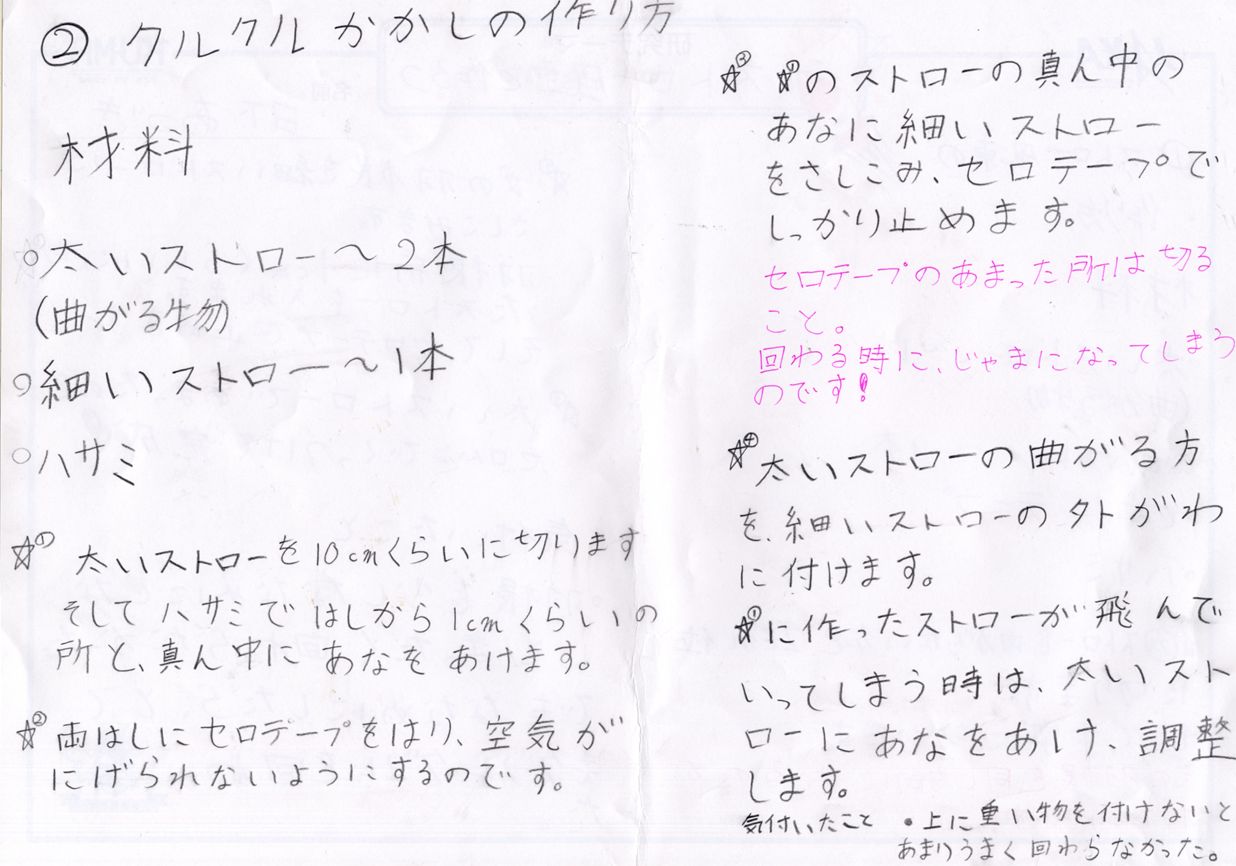 ② クルクルかかしの作り方
材料
○太いストロー〜2本
(曲がる物)
○細いストロー〜1本
○ハサミ
☆① 太いストローを10cmくらいに切ります
そしてハサミではしから1cmくらいの
所と、真ん中にあなをあけます。
☆② 両はしにセロテープをはり、空気が
にげられないようにするのです。
☆③ ☆①のストローの真ん中の
あなに細いストロー
をさしこみ、セロテープで
しっかり止めます。
セロテープのあまった所は切る
こと。
回わる時に、じゃまになってしまう
のです!
☆④ 太いストローの曲がる方
を、細いストローの外がわ
に付けます。
☆①に作ったストローが飛んで
いってしまう時は、太いスト
ローにあなをあけ、調整
します。
気付いたこと ・上に重い物を付けないと
あまりうまく回わらなかった。